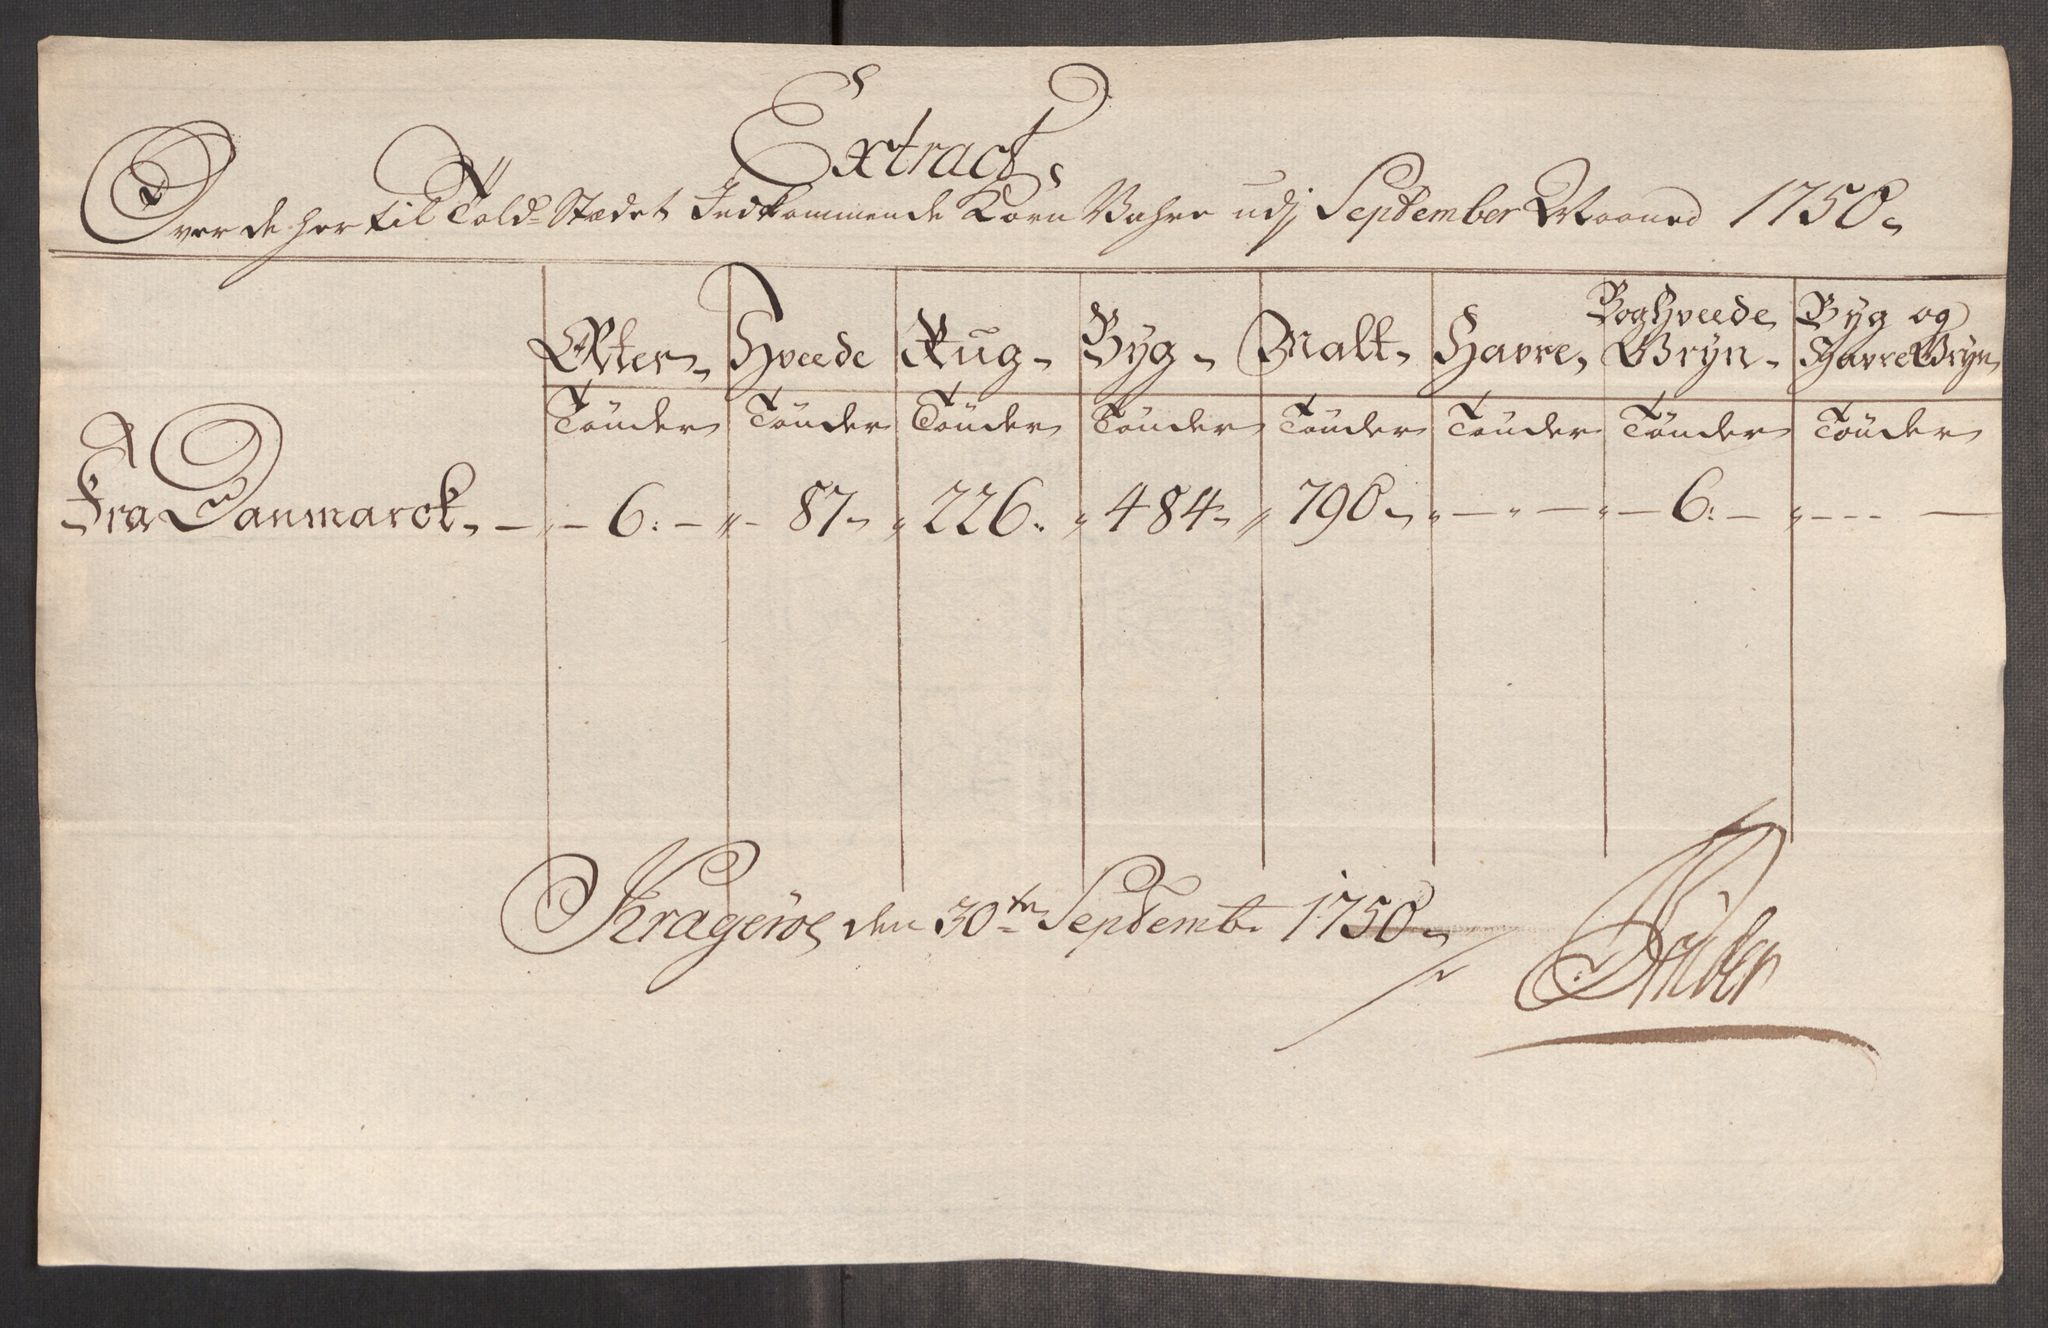 Extract
Over de her til Told-Stædet Indkommende Korn Vahre udj September Maaned 1750
Erter Hveede Rug Byg Malt Havre BogHveede Gryn Byg og Havre Gryn
Tönder Tönder Tönder Tönder Tönder Tönder Tönder Tönder
Fra Danmarck 6 87 226 484 790 6
Krageröe den 30te Septembr 1750